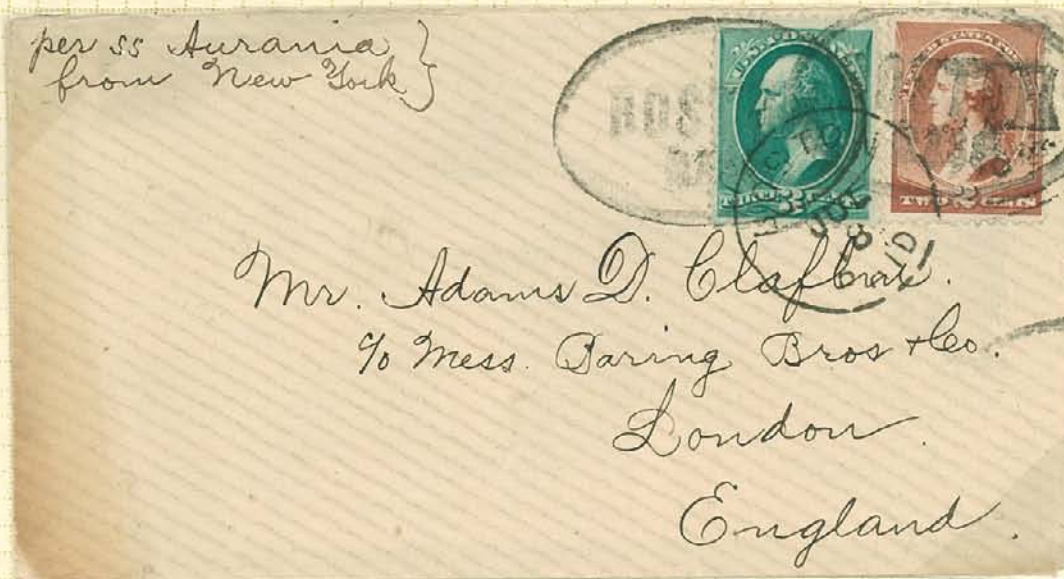 per ss Aurania }
from New York }
THREE 3 CENTS
TWO 2 CENTS
Mr. Adams D. Claflin.
c/o Mess. Baring Bros & Co.
London.
England.